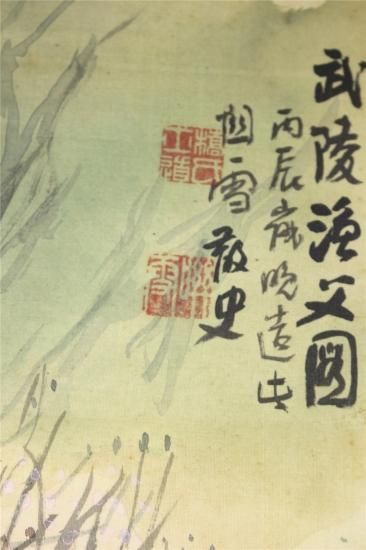 武陵漁父圖
丙辰歳晩造此
關雪散史